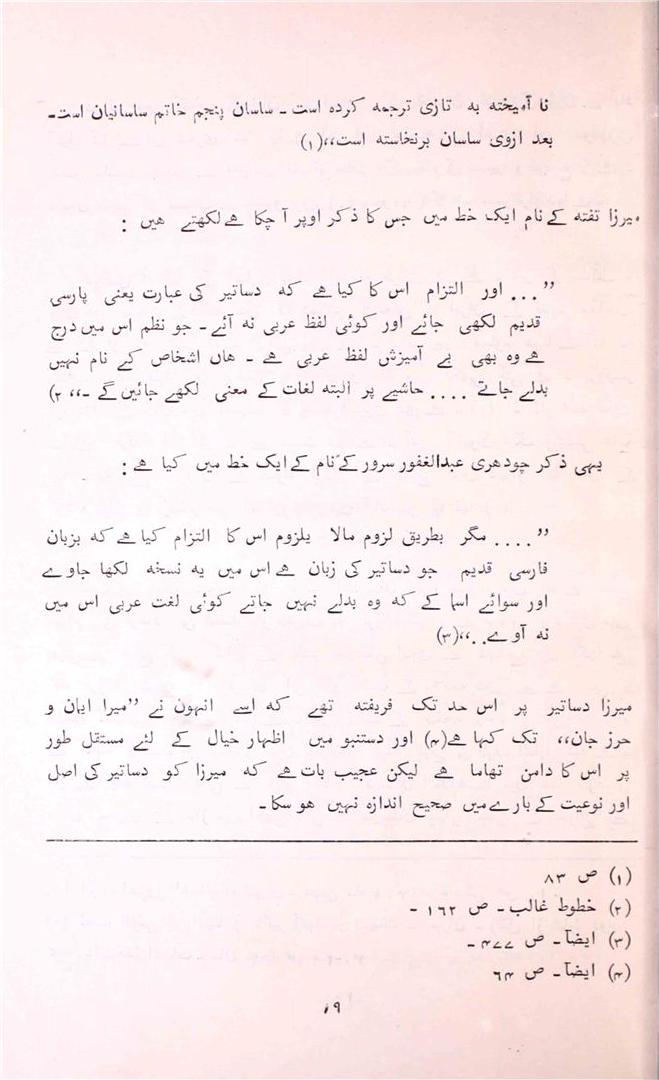 نا آمیخته به تازی ترجمه کرده است ـ ساسان پنجم خاتم ساسانیان است ـ
بعد ازوی ساسان برنخاسته است،،(۱)
میرزا تفته کے نام ایک خط میں جس کا ذکر اوپر آ چکا ہے لکھتے ہیں :
”... اور التزام اس کا کیا ہے کہ دساتیر کی عبارت یعنی پارسی
قدیم لکھی جائے اور کوئی لفظ عربی نہ آئے ـ جو نظم اس میں درج
ہے وہ بھی بے آمیزش لفظ عربی ہے ـ ہاں اشخاص کے نام نہیں
بدلے جاتے .... حاشیے پر البتہ لغات کے معنی لکھے جائیں گے ـ،، ۲)
یہی ذکر چودھری عبدالغفور سرور کے نام کے ایک خط میں کیا ہے :
”.... مگر بطریق لزوم مالا یلزوم اس کا التزام کیا ہے کہ بزبان
فارسی قدیم جو دساتیر کی زبان ہے اس میں یہ نسخہ لکھا جاوے
اور سوائے اسما کے کہ وہ بدلے نہیں جاتے کوئی لغت عربی اس میں
نہ آوے..،،(۳)
میرزا دساتیر پر اس حد تک فریفتہ تھے کہ اسے انہون نے ”میرا ایمان و
حرز جان،، تک کہا ہے(۴) اور دستنبو میں اظہار خیال کے لئے مستقل طور
پر اس کا دامن تھاما ہے لیکن عجیب بات ہے کہ میرزا کو دساتیر کی اصل
اور نوعیت کے بارے میں صحیح اندازہ نہیں ہو سکا ـ
(۱) ص ۸۳
(۲) خطوط غالب ـ ص ۱۶۲ ـ
(۳) ایضآ ـ ص ۴۷۷ ـ
(۴) ایضآ ـ ص ۶۴
۱۹